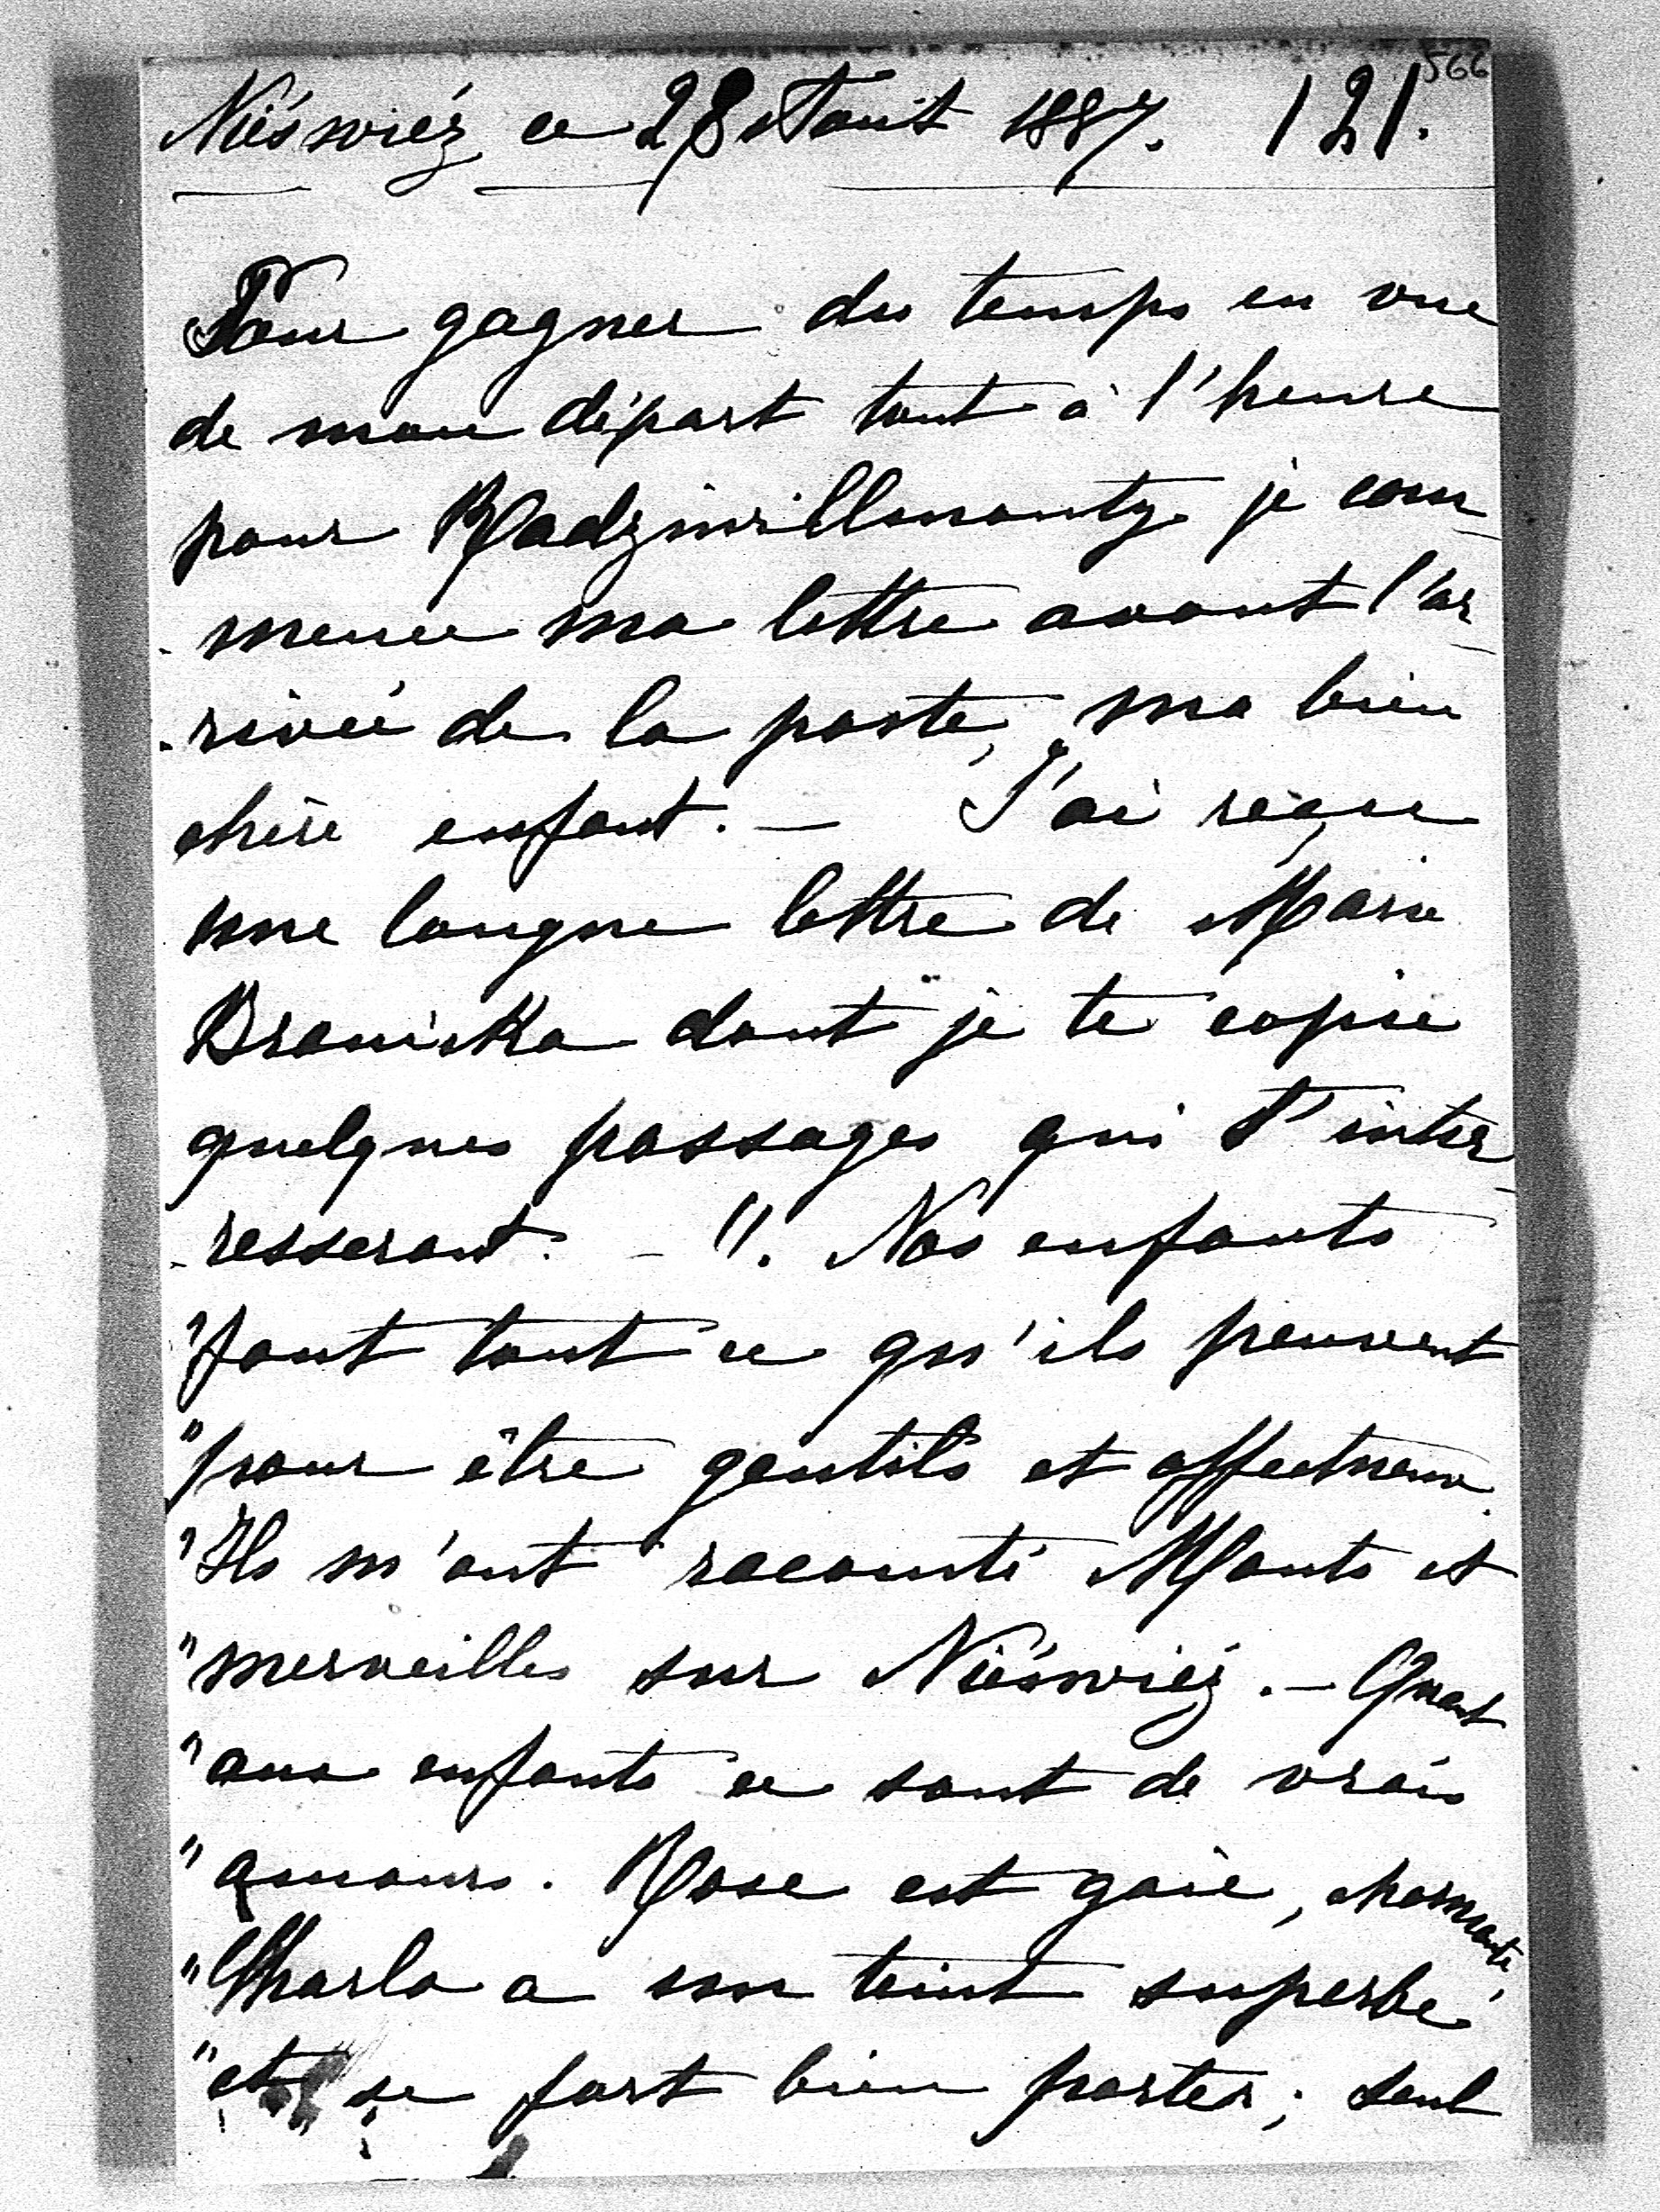 566
Nieśwież ce 28 Août 1887. 121.
Pour gagner du temps en vue
de mon départ tout à l'heure
pour Radziwillmonty je com-
-mence ma lettre avant l'ar-
-rivée de la poste, ma bien
chère enfant. — J'ai reçue
une longue lettre de Marie
Branicka dont je te copie
quelques passages qui t'inter-
-resseront. — ". Nos enfants
"font tout ce qu'ils peuvent
"pour être gentils et affectueux.
"Ils m'ont raconté Monts et
"merveilles sur Nieśwież. — Quant
"aux enfants ce sont de vrais
"amours. Rose est gaie, charmante,
"Charlo a un teint superbe
"et se fort bien porter; seul